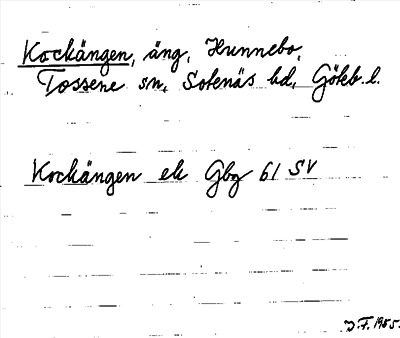 Kockängen, äng, Hunnebo,
Tossene sn, Sotenäs hd, Göteb. l.
Kockängen ek Gbg 61 SV
J. F. 1955.